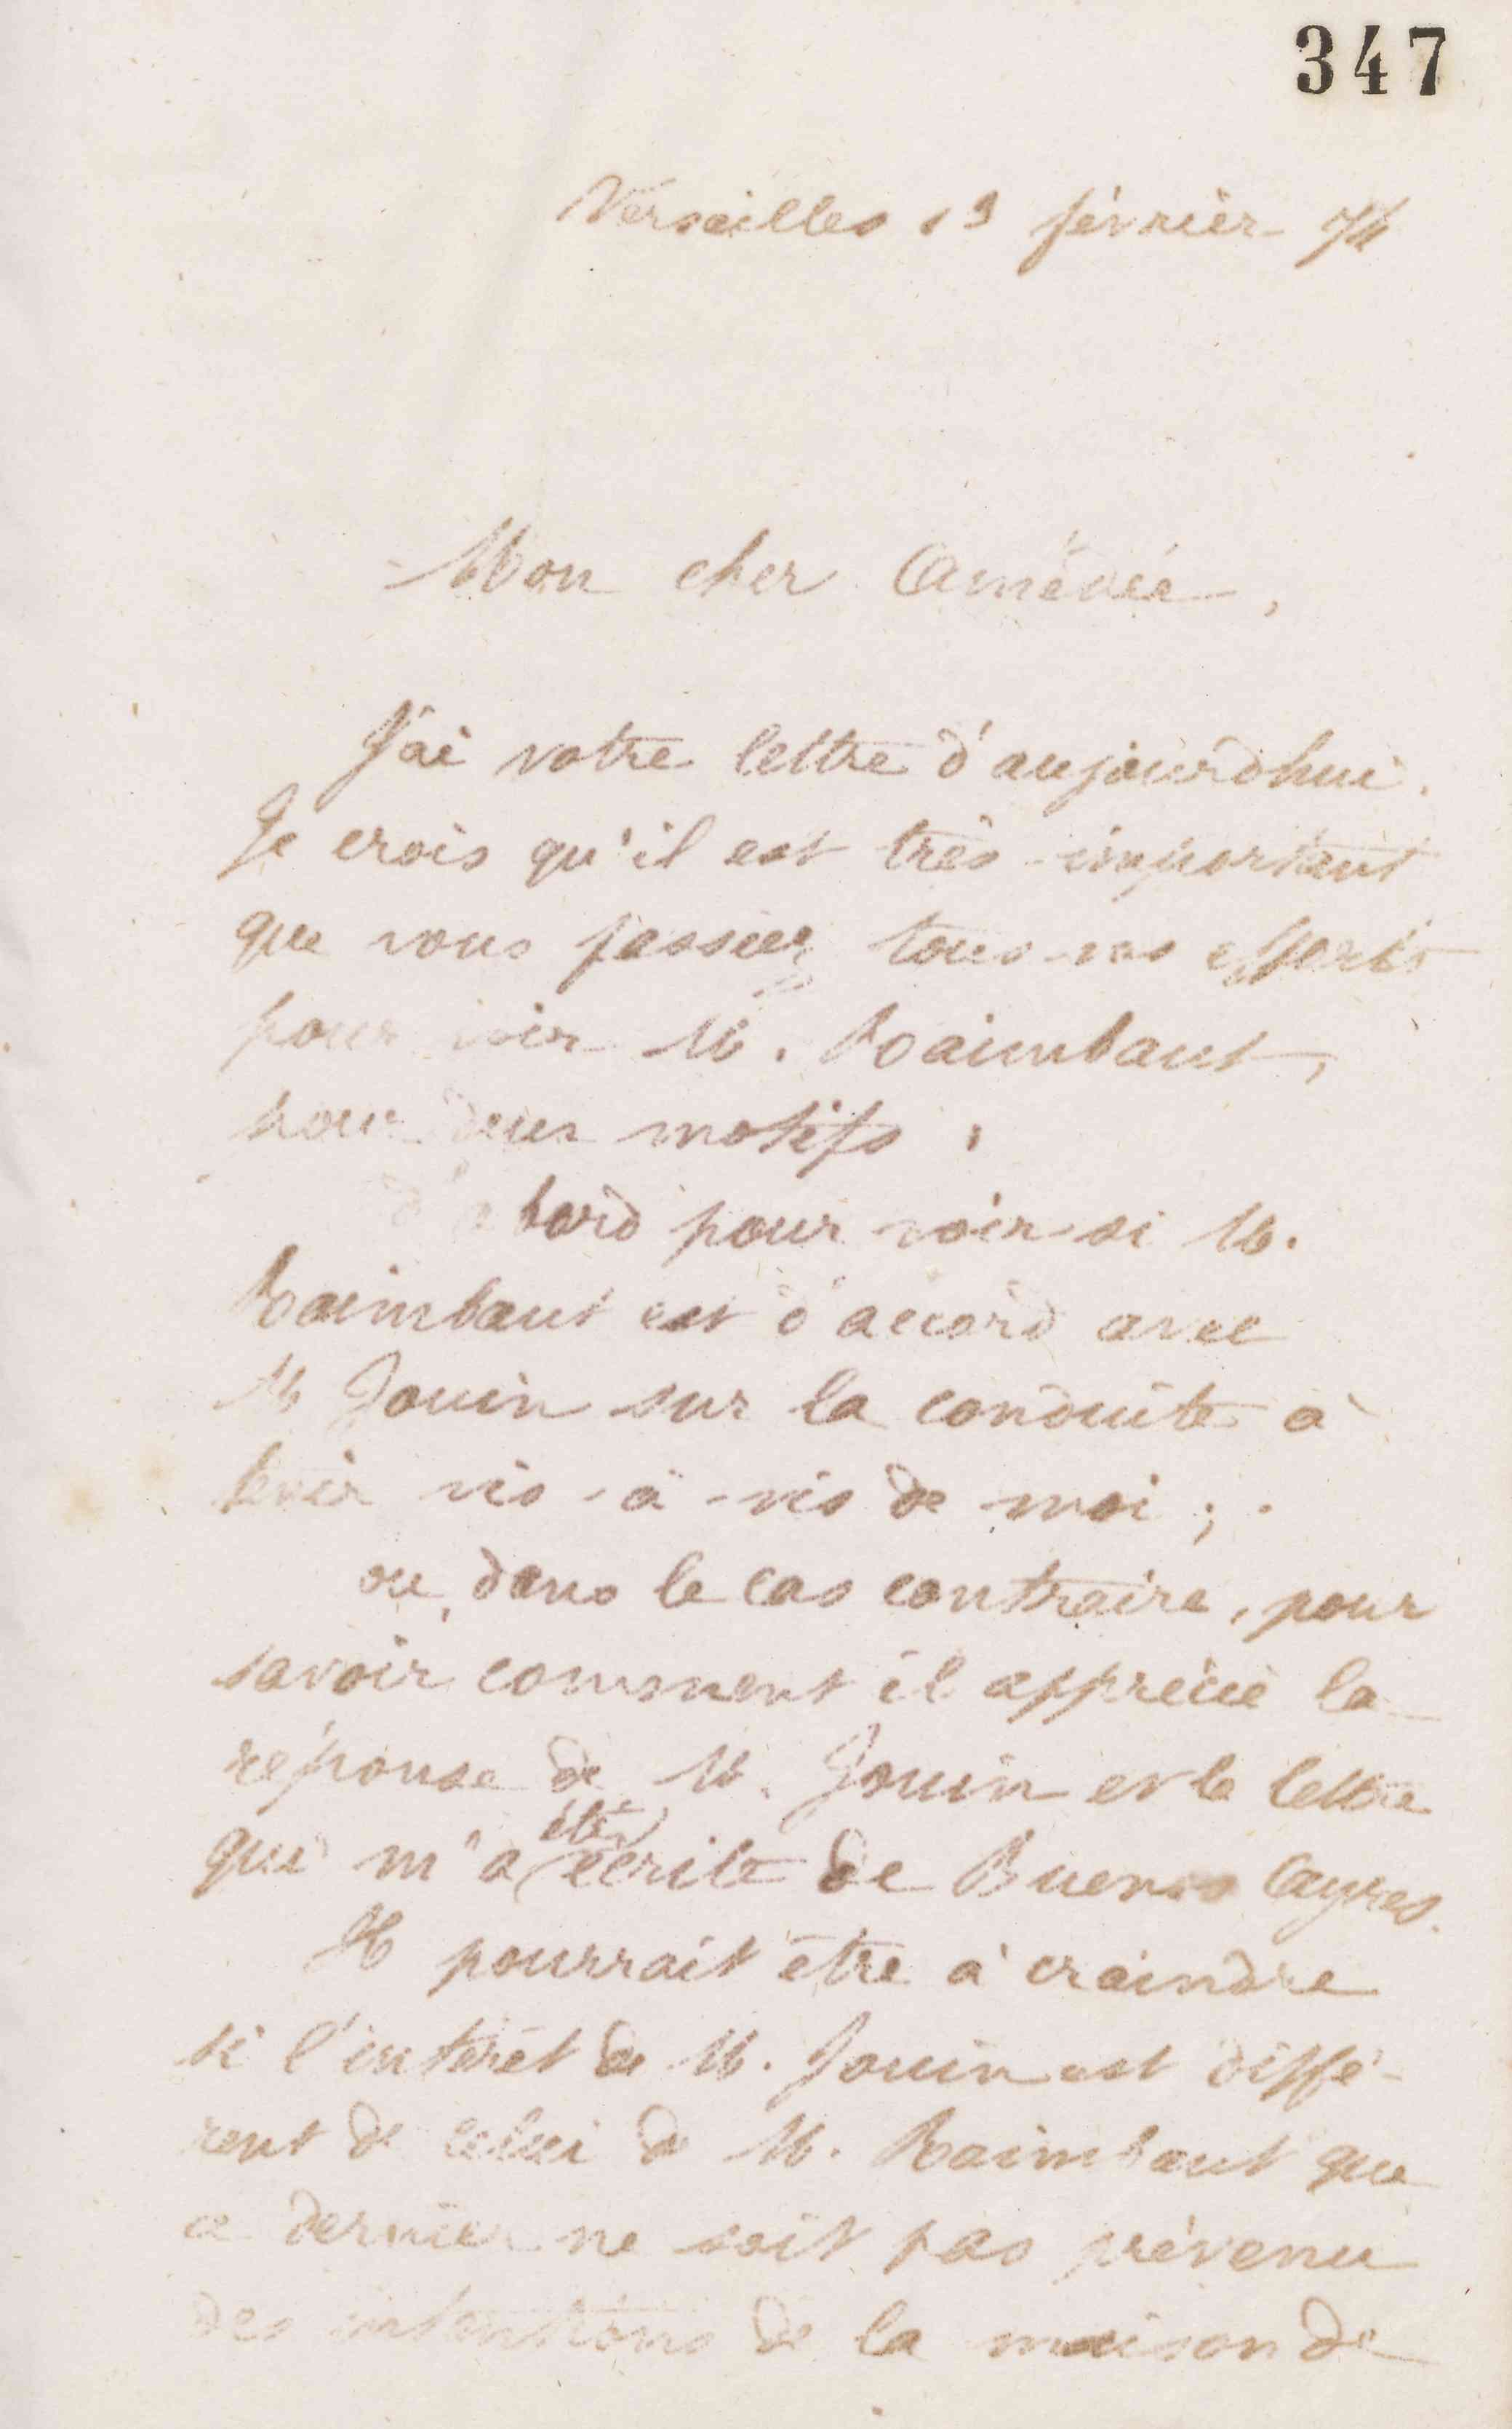 347
Versailles 13 février 74
Mon cher Amédée,
J'ai votre lettre d'aujourd'hui.
Je crois qu'il est très important
que vous fassiez tous vos efforts
pour voir M. Raimbaut,
pour deux motifs :
d'abord pour voir si M.
Raimbaut est d'accord avec
M Jouin sur la conduite à
tenir vis-à-vis de moi ;
ou, dans le cas contraire, pour
savoir comment il apprécie la
réponse de M. Jouin et la lettre
qui m'a été écrite de Buenos Ayres.
Il pourrait être à craindre
si l'intérêt de M. Jouin est diffé-
rent de celui de M. Raimbaut que
ce dernier ne soit pas prévenu
des intentions de la maison de